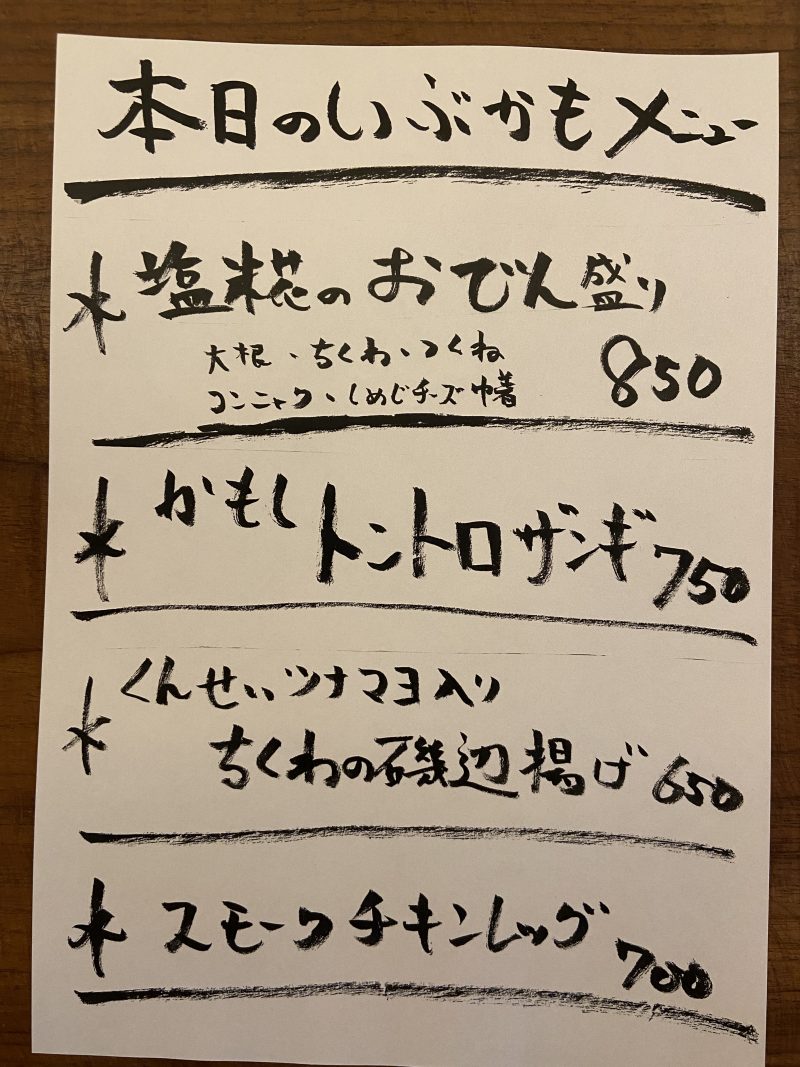 本日のいぶかもメニュー
塩糀のおでん盛り
大根、ちくわ、つくね
コンニャク、しめじチーズ巾着
850
かもし
トントロザンギ 750
くんせいツナマヨ入り
ちくわの磯辺揚げ 650
スモークチキンレッグ
700